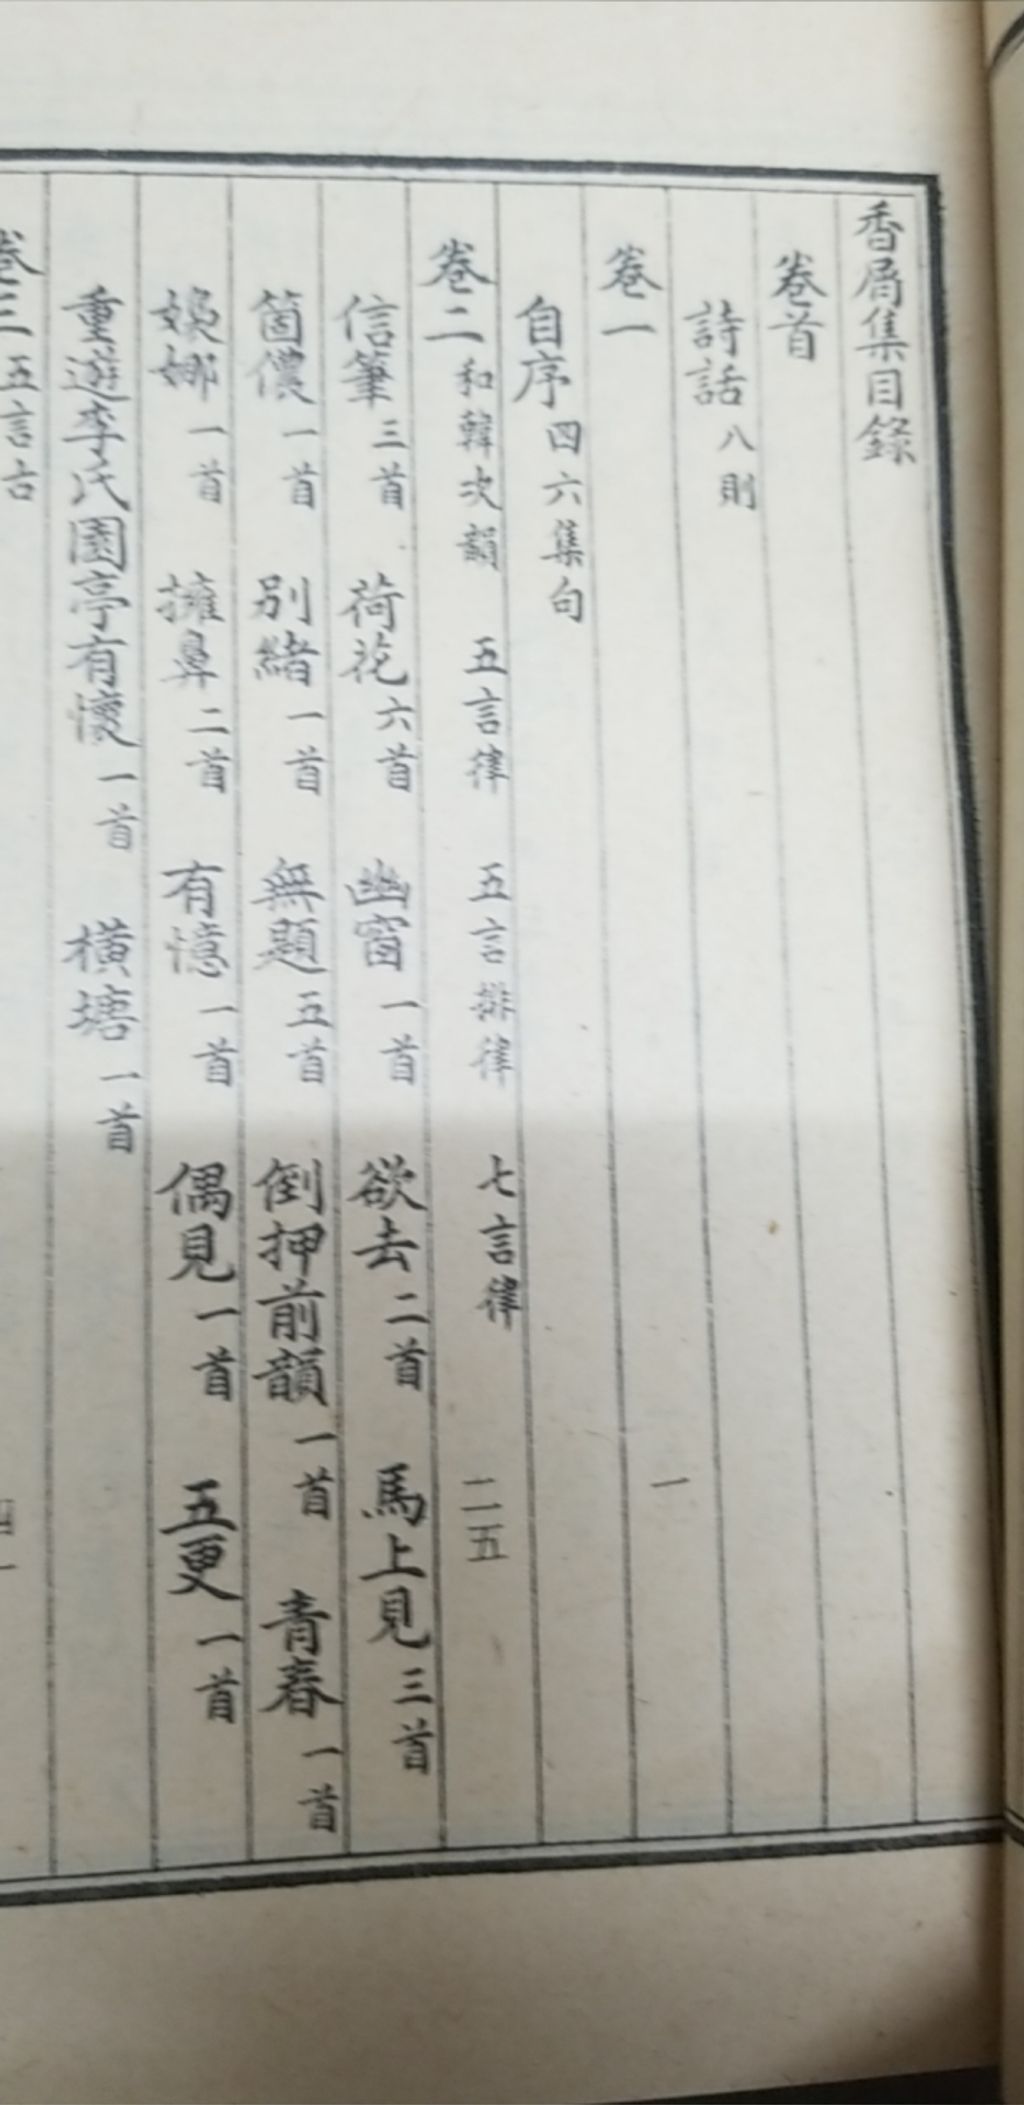 香屑集目錄
卷首
詩話八則
卷一 一
自序四六集句
卷二和韓次韻 五言律 五言排律 七言律 二五
信筆三首 荷花六首 幽窗一首 欲去二首 馬上見三首
箇儂一首 別緒一首 無題五首 倒押前韻一首 青春一首
娜一首 擁鼻二首 有憶一首 偶見一首 五更一首
重遊李氏園亭有懷一首 橫塘一首
卷三五言古